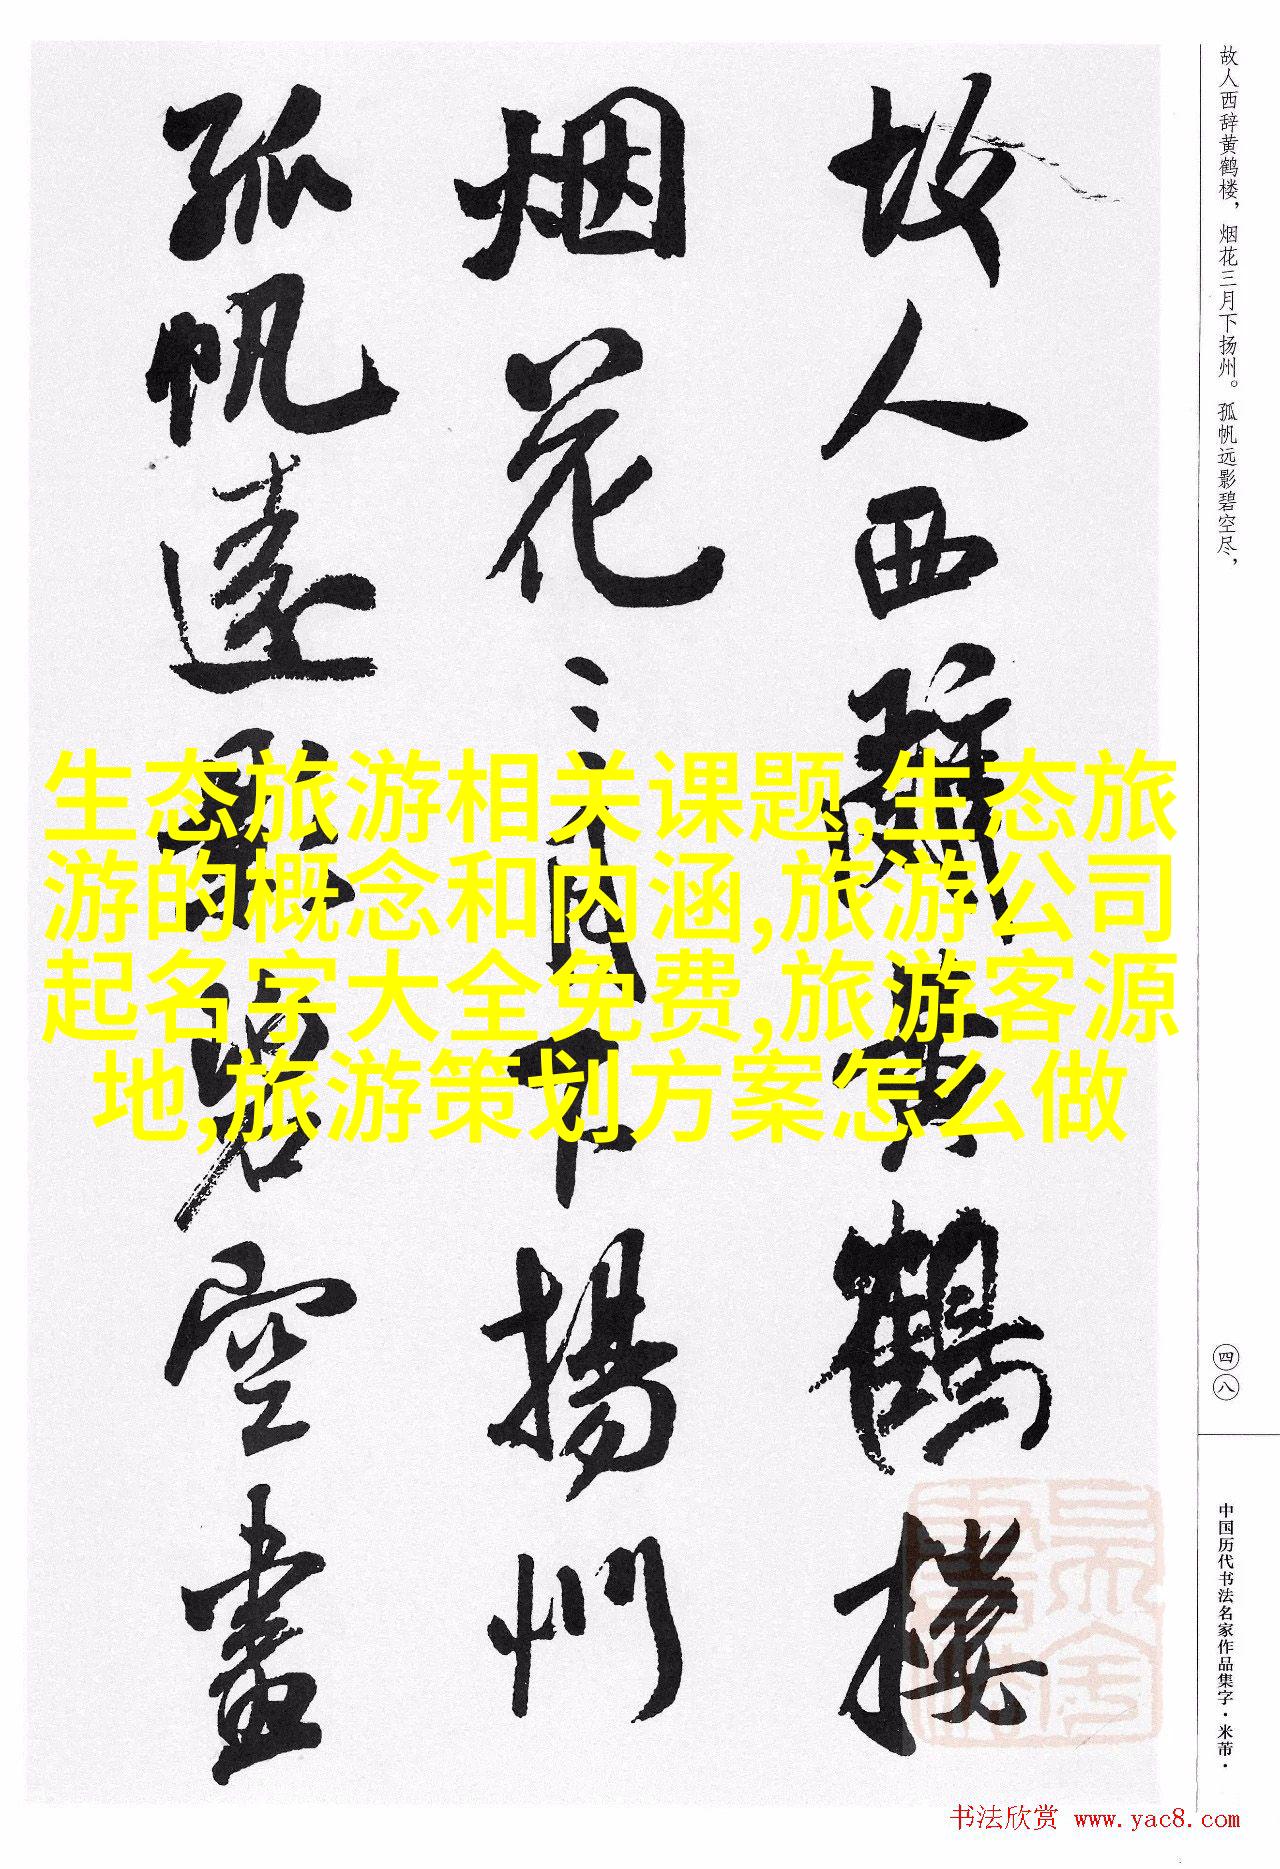 故人西辞黄鹤楼，烟花三月下扬州。孤帆远影碧空尽，
故人西辭黄鶴楼
烟花三月下揚州
孤帆遠影碧空盡
生态旅游相关课题,生态旅
游的概念和内涵,旅游公司
起名字大全免费,旅游客源
地,旅游策划方案怎么做
四八
中国历代书法名家作品集字·米芾·
书法欣赏 www.yac8.com